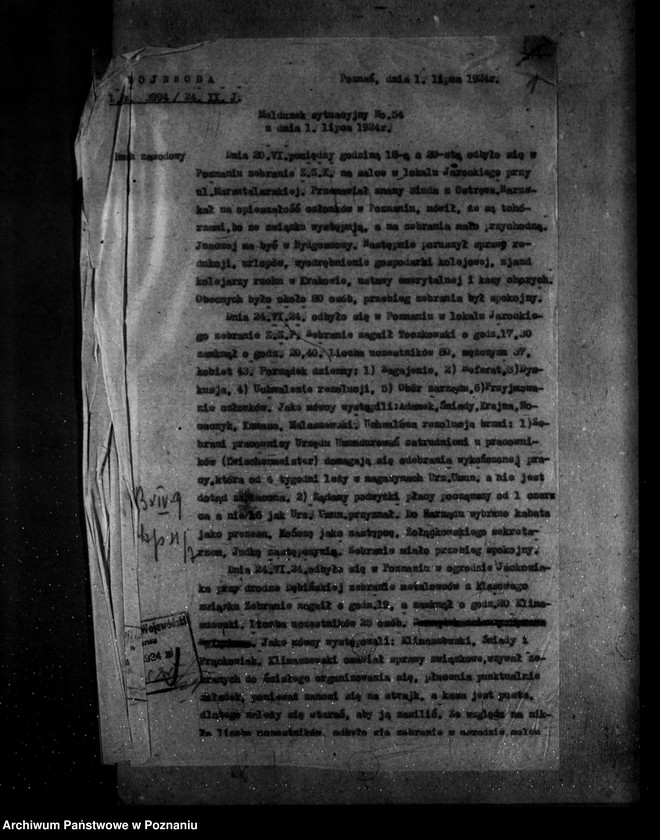 WOJEWODA
3994/24. II. J.
Poznań, dnia 1. lipca 1924r.
Meldunek sytuacyjny No.54
z dnia 1. lipca 1924r.
Ruch zawodowy
Dnia 20.VI.pomiędzy godziną 18-ą a 20-stą odbyło się w
Poznaniu zebranie Z.Z.K. na salce w lokalu Jarockiego przy
ul.Marsztalarskiej. Przemawiał znany Binda z Ostrowa.Narze-
kał na opieszałość członków w Poznaniu, mówił, że są tchó-
rzami,bo ze związku występują, a na zebrania mało przychodzą.
Inaczej ma być w Bydgoszczy. Następnie poruszył sprawę re-
dukcji, urlopów, wyodrębnienie gospodarki kolejowej, zjazd
kolejarzy ruchu w Krakowie, ustawy emerytalnej i kasy chorych.
Obecnych było około 80 osób, przebieg zebrania był spokojny.
Dnia 24.VI.24. odbyło się w Poznaniu w lokalu Jarockie-
go zebranie Z.Z.P. Zebranie zagaił Toszkowski o godz.17,30
zamknął o godz. 20,40. Liczba uczestników 80, mężczyzn 37,
kobiet 43. Porządek dzienny: 1) Zagajenie, 2) Referat,3)Dys-
kusja, 4) Uchwalenie rezolucji, 5) Obór zarządu, 6)Przyjmowa-
nie członków. Jako mówcy wystąpili:Adamek,Śniady,Krajna,No-
waczyk, Kamasa, Malaszewski. Uchwalona rezolucja brzmi: 1)Ze-
brani pracownicy Urzędu Umundurowań zatrudnieni u pracowni-
ków (Zwischenmeister) domagają się odebrania wykończonej pra-
cy,która od 6 tygodni leży w magazynach Urz.Umun. a nie jest
dotąd zapłacona. 2) Żądamy podwyżki płacy począwszy od 1 czerw
ca a nie 16 jak Urz. Umun.przyznał. Do Zarządu wybrano Kabata
jako prezesa, jako następcę, Żołądkowskiego sekreta-
rzem, Judkę zastępczynią. Zebranie miało przebieg spokojny.
Dnia 24.VI.24.odbyło się w Poznaniu w ogrodzie Jackowia-
ka przy drodze Dębińskiej zebranie metalowców z Klasowego
związku Zebranie zagaił o godz.19, a zamknął o godz.20 Klima-
szewski. Liczba uczestników 25 osób.
Jako mówcy występowali: Klimaszewski, Śniady i
Frąckowiak. Klimaszewski omawiał sprawy związkowe,wzywał ze-
branych do ściślego organizowania się, płacenia punktualnie
składek, ponieważ zanosi się na strajk, a kasa jest pusta,
dlatego należy się starać, aby ją zasilić. Ze względu na nik-
łą liczbę uczestników, odbyło się zebranie w ogrodzie
Archiwum Państwowe w Poznaniu